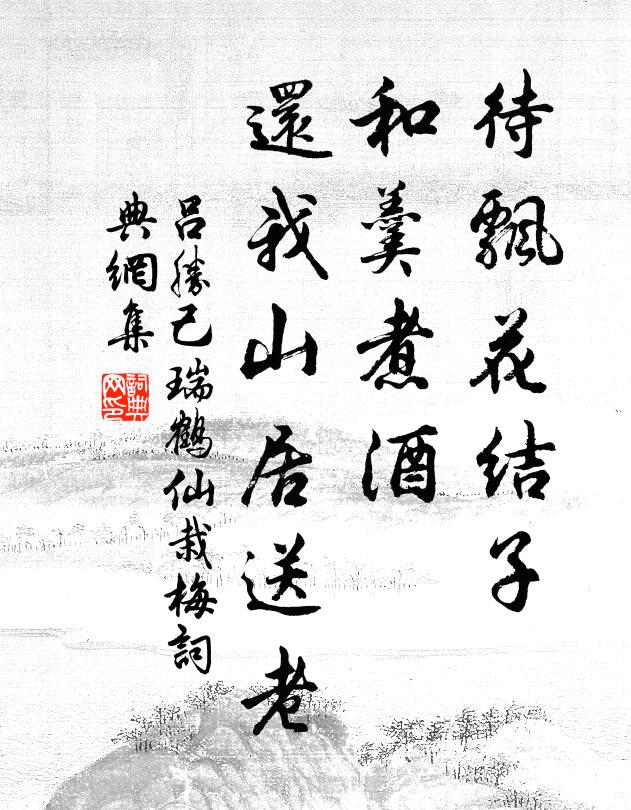 待飄花结子
和羹煮酒
還我山居送老
吕勝己瑞鶴仙栽梅詞
典網集
詞典网印